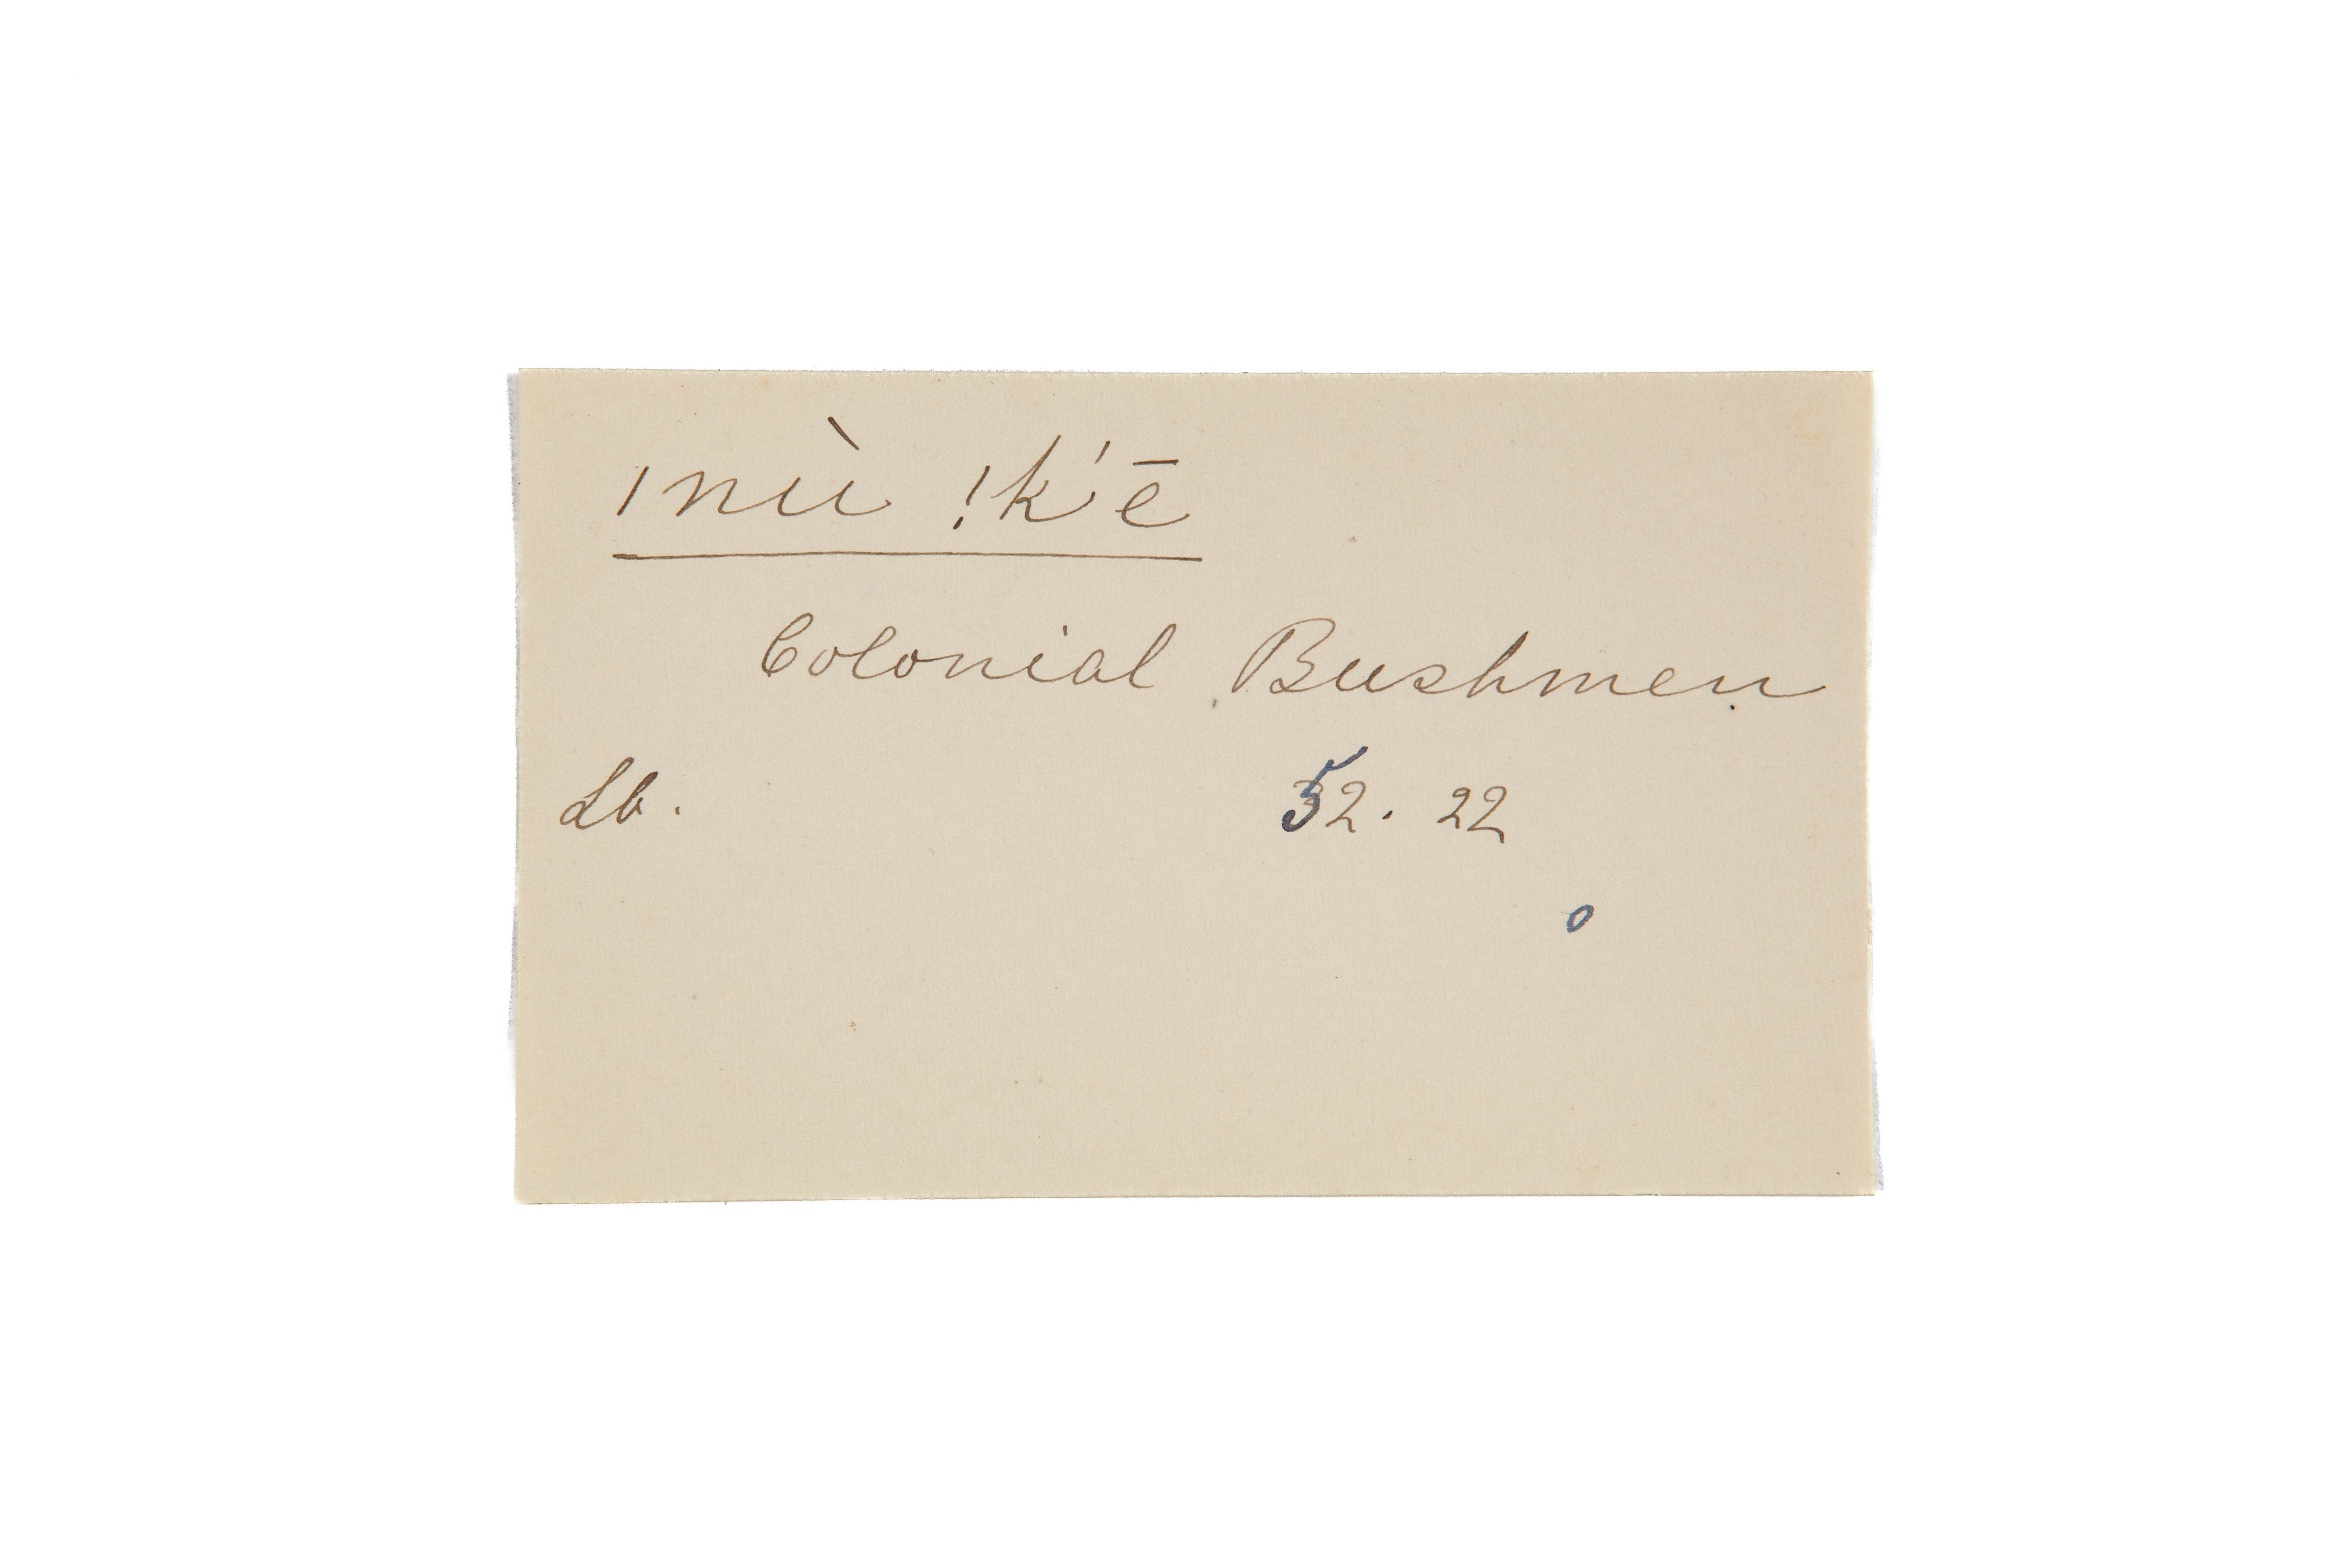 ǀnù !k'ē
Colonial Bushmen
Lb. 52. 22
o